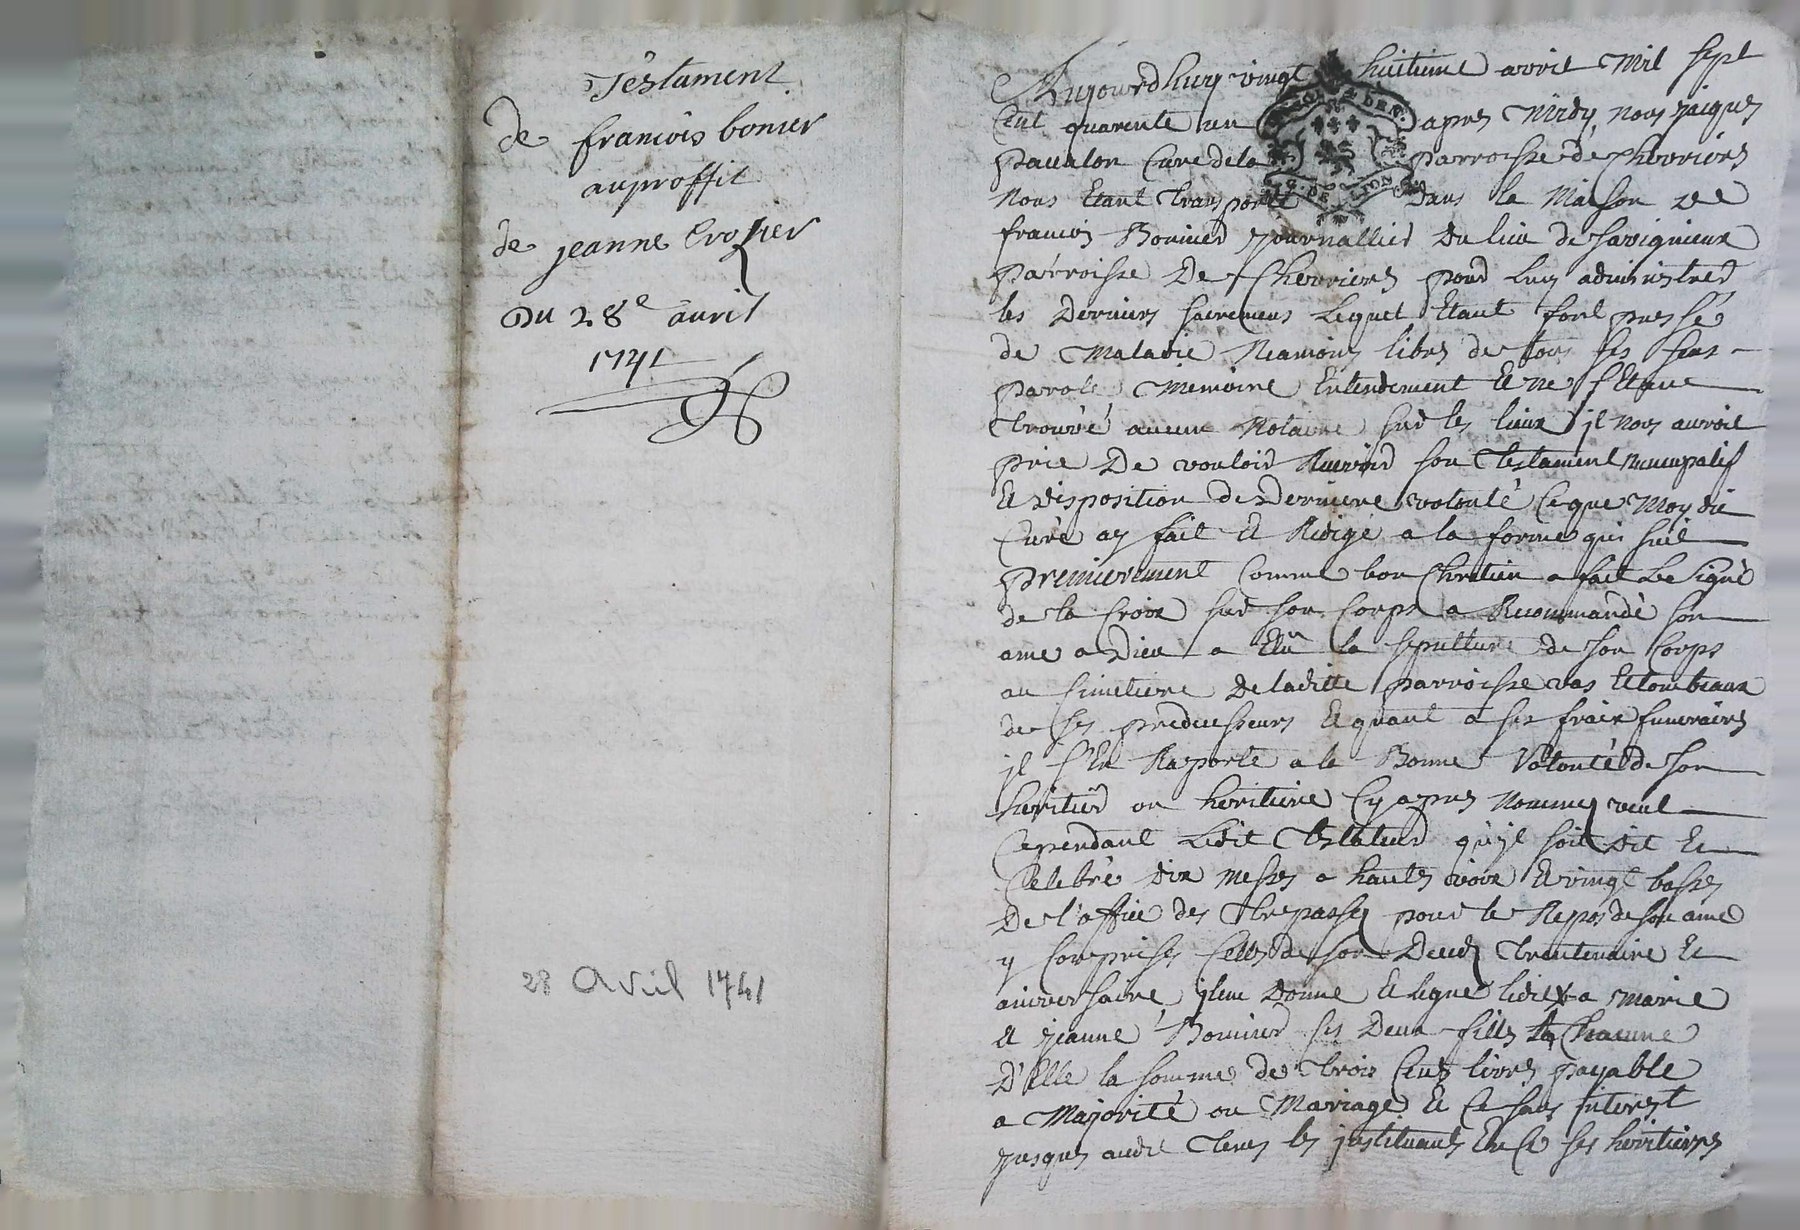 Testament
de francois bonier
au proffit
de jeanne Crozier
Du 28e avril
1741
28 Avril 1741
Aujourdhuy vingt huitieme avril Mil sept
Cent quarente un apres Midy, nous jacques
pavalon Curé de la parroisse de Chevrieres
Nous Etant Transporté dans la Maison de
francois Bonier journallier du lieu de Savignieux
parroisse De Chevrieres pour luy administrer
les Derniers sacremens lequel Etant fort pressé
de Maladie Neamoins libre de tous ses sens
parole Memoire Entendement Et ne s'Etant
Trouvé aucun Notaire sur les lieux il nous auroit
prié De vouloir Recevoir son Testament Nuncupatif
Et disposition de Derniere volonté Ce que Moy dit
Curé ay fait Et Redigé a la forme qui suit
premierement Comme bon Chretien a fait Le Signe
de la Croix sur son Corps a Recommandé son
ame a Dieu a Elû la sepulture de son Corps
au Cimetiere De laditte parroisse vas Et tombeaux
de ses predecesseurs Et quant a ses fraix funeraires
il s'En Raporte a la Bonne Volonté de son
heritier ou heritiere Cy apres Nommez veut
Cependant Ledit Testateur qu'il soit dit Et
Celebré dix Messes a hautes voix Et vingt basses
De l'office des Trepassez pour le Repos de son ame
y Comprises Celles de son Deces Trentenaire Et
aniversaire, Donne Et legue a Marie
Et jeanne Bonier ses Deux filles a Chacune
D'Elle la somme de Trois Cents livres payable
a Majorité ou Mariage Et Ce sans interest
jusques audit Tems les instituants En Ce ses heritieres